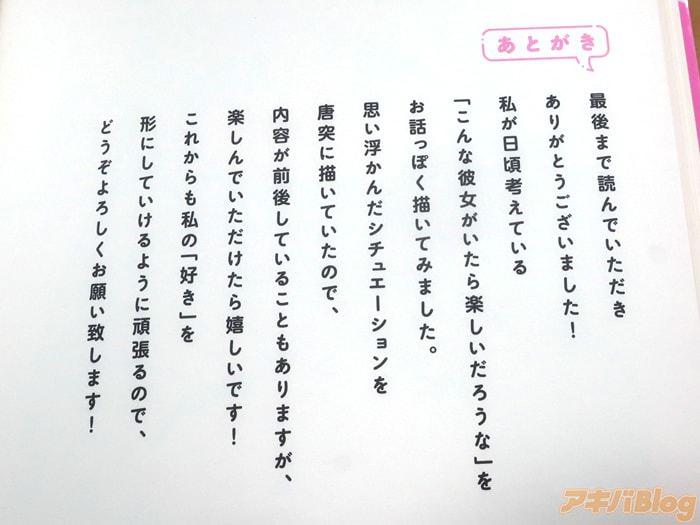 あとがき
最後まで読んでいただき
ありがとうございました！
私が日頃考えている
「こんな彼女がいたら楽しいだろうな」を
お話っぽく描いてみました。
思い浮かんだシチュエーションを
唐突に描いていたので、
内容が前後していることもありますが、
楽しんでいただけたら嬉しいです！
これからも私の「好き」を
形にしていけるように頑張るので、
どうぞよろしくお願い致します！
アキバBlog